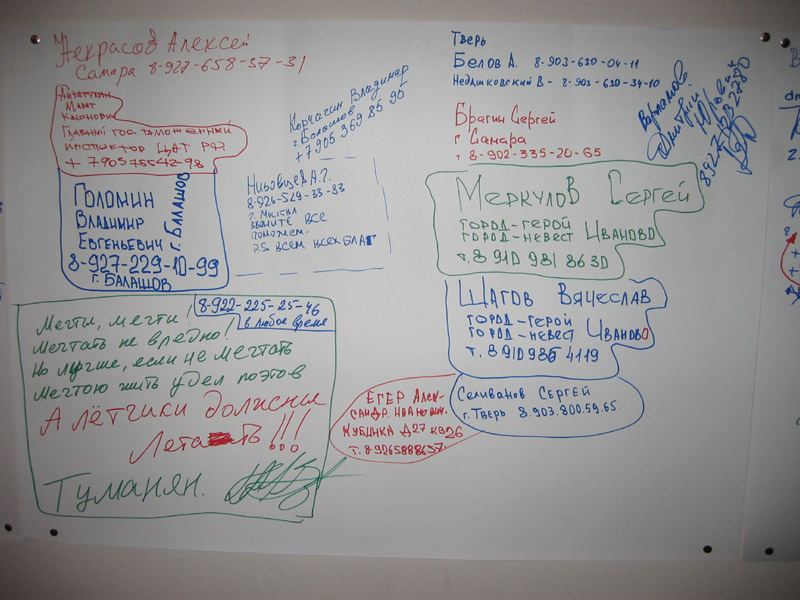 Некрасов Алексей
Самара 8-927-658-37-31
Главный гос таможенный
инспектор ЦАТ РФ
+ 79057554298
Корчагин Владимир
г. Балашов
+7 905 369 85 95
Голомин
Владимир
Евгеньевич
г. Балашов
8-927-229-10-99
г. Балашов
Низовцев А.Г.
8-926-529-33-83
г. Москва
Звоните все
поможем.
P.S всем всех благ
8-922-225-25-46
в любое время
Мечты, мечты!
Мечтать не вредно!
Но лучше, если не мечтать
Мечтою жить удел поэтов
А лётчики должны
Летать!!!
Туманян.
Тверь
Белов А. 8-903-630-04-11
Недашковский В - 8-903-630-34-10
Брагин Сергей
г Самара
т 8-902-335-20-65
Варламов
Дмитрий
Юрьевич
89275882780
Меркулов Сергей
город-герой
город-невест Иваново
т. 8 910 981 86 30
Шагов Вячеслав
город-герой
город-невест Иваново
т. 8910 985 4119
Селиванов Сергей
г. Тверь 8.903.800.59.65.
Егер Алек-
сандр. Иванович.
Кубинка Д27 кв26
т. 8-9265888637.